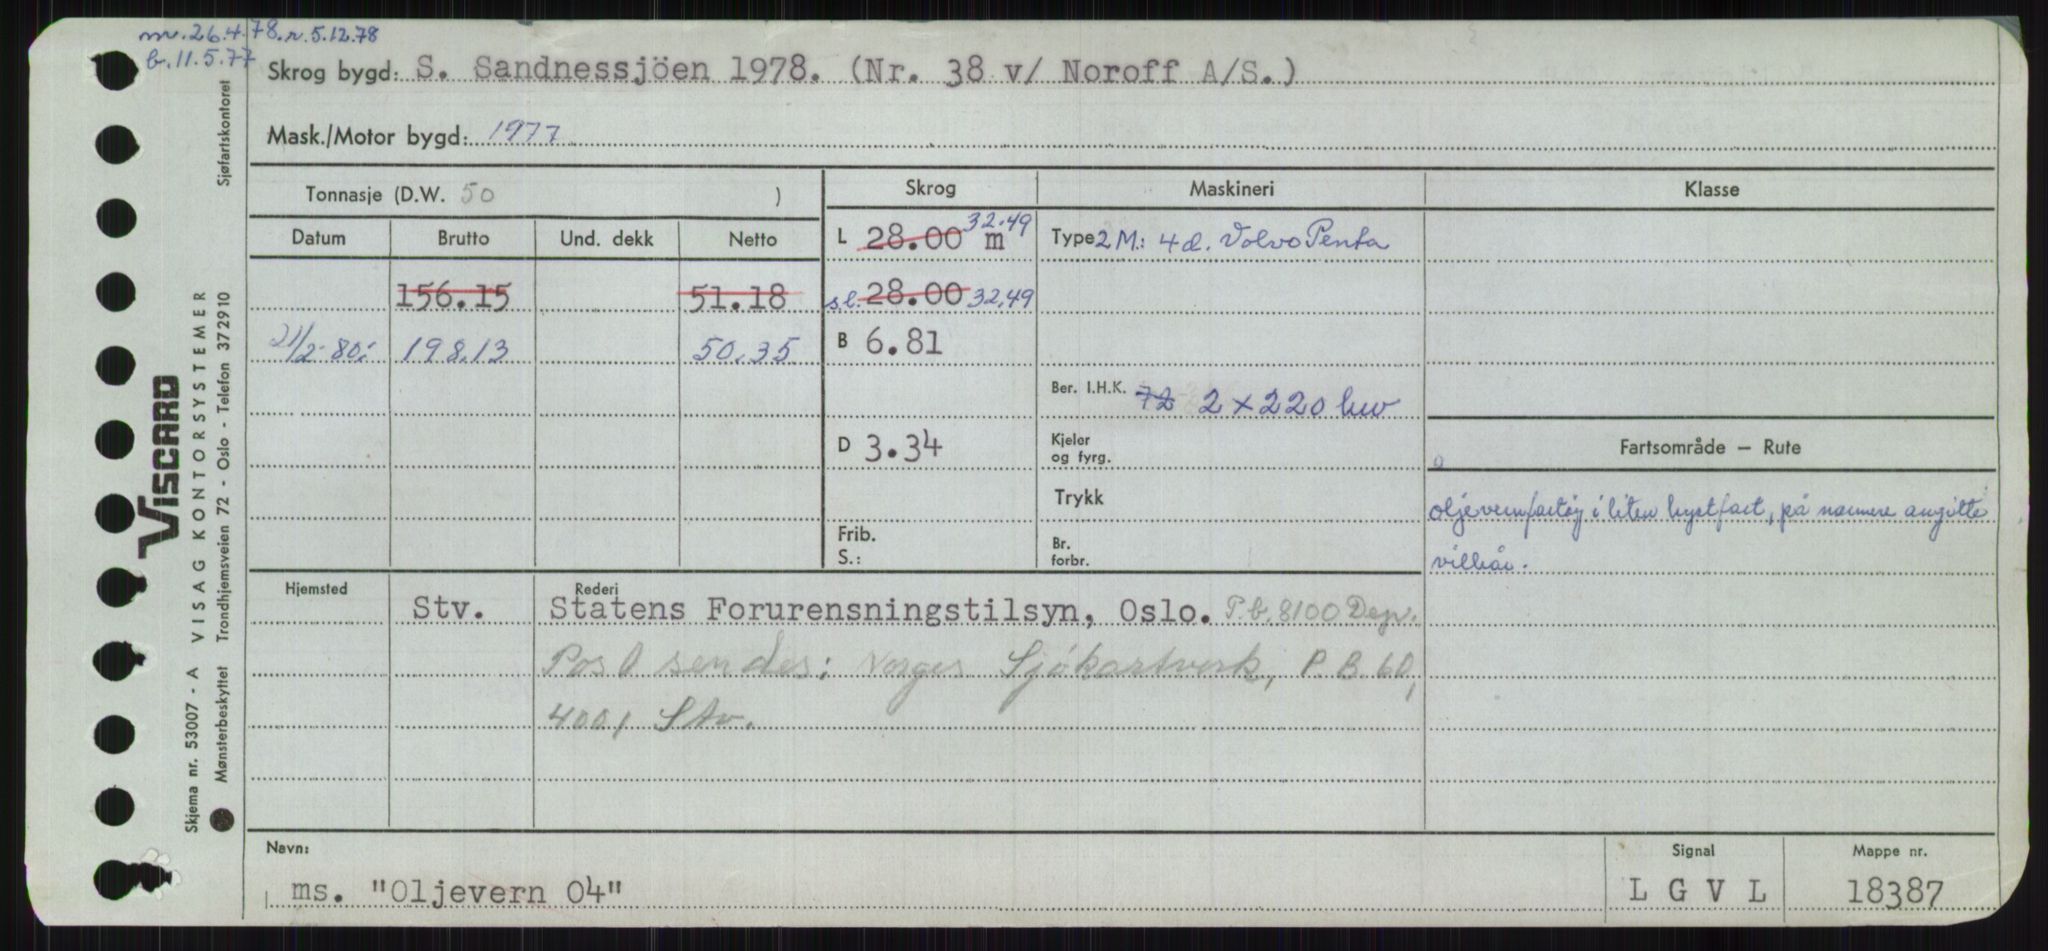 m. 26.4.78. r. 5.12.78
b. 11.5.77
Skrog bygd: S. Sandnessjöen 1978. (Nr. 38 v/ Noroff A/S.)
Mask./Motor bygd: 1977
Tonnasje (D.W. 50 )
Skrog
Maskineri
Klasse
Datum Brutto Und. dekk Netto
L 28.00 m 32.49
Type 2 M.: 4 d. Volvo Penta
156.15 51.18
s.l. 28.00 32.49
21/2-80: 198.13 50.35
B 6.81
Ber. I.H.K. 72 2 x 220 kw
D 3.34
Kjeler
og fyrg.
Fartsområde – Rute
Trykk
oljevernfartøy i liten kystfart, på nærmere angitte
vilkår.
Frib.
S.:
Br.
forbr.
Hjemsted
Rederi
Stv. Statens Forurensningstilsyn, Oslo. P.b. 8100 Dep.
Post sendes: Norges Sjökartverk, P.B. 60,
4001 Stv.
Navn:
ms. "Oljevern 04"
Signal
L G V L
Mappe nr.
18387
VISCARD
Skjema nr. 53007 - A VISAG KONTORSYSTEMER
Mønsterbeskyttet Trondhjemsveien 72 - Oslo - Telefon 372910
Sjøfartskontoret